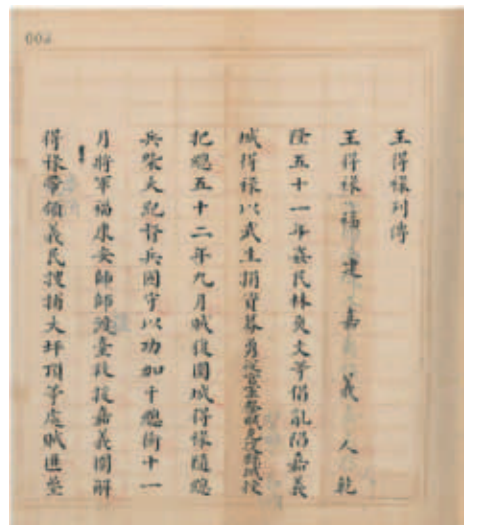 王得祿列傳
王得祿福建嘉義人乾
隆五十一年姦民林爽文等倡亂陷嘉義
城得祿以武生捐資募勇從官軍
把總五十二年九月賊復圍城得祿隨總
兵柴大紀督兵固守以功加千總銜十一
月將軍福康安師師渡臺救援嘉義圍解
得祿帶領義民搜捕大坪頂等處賊匪
004